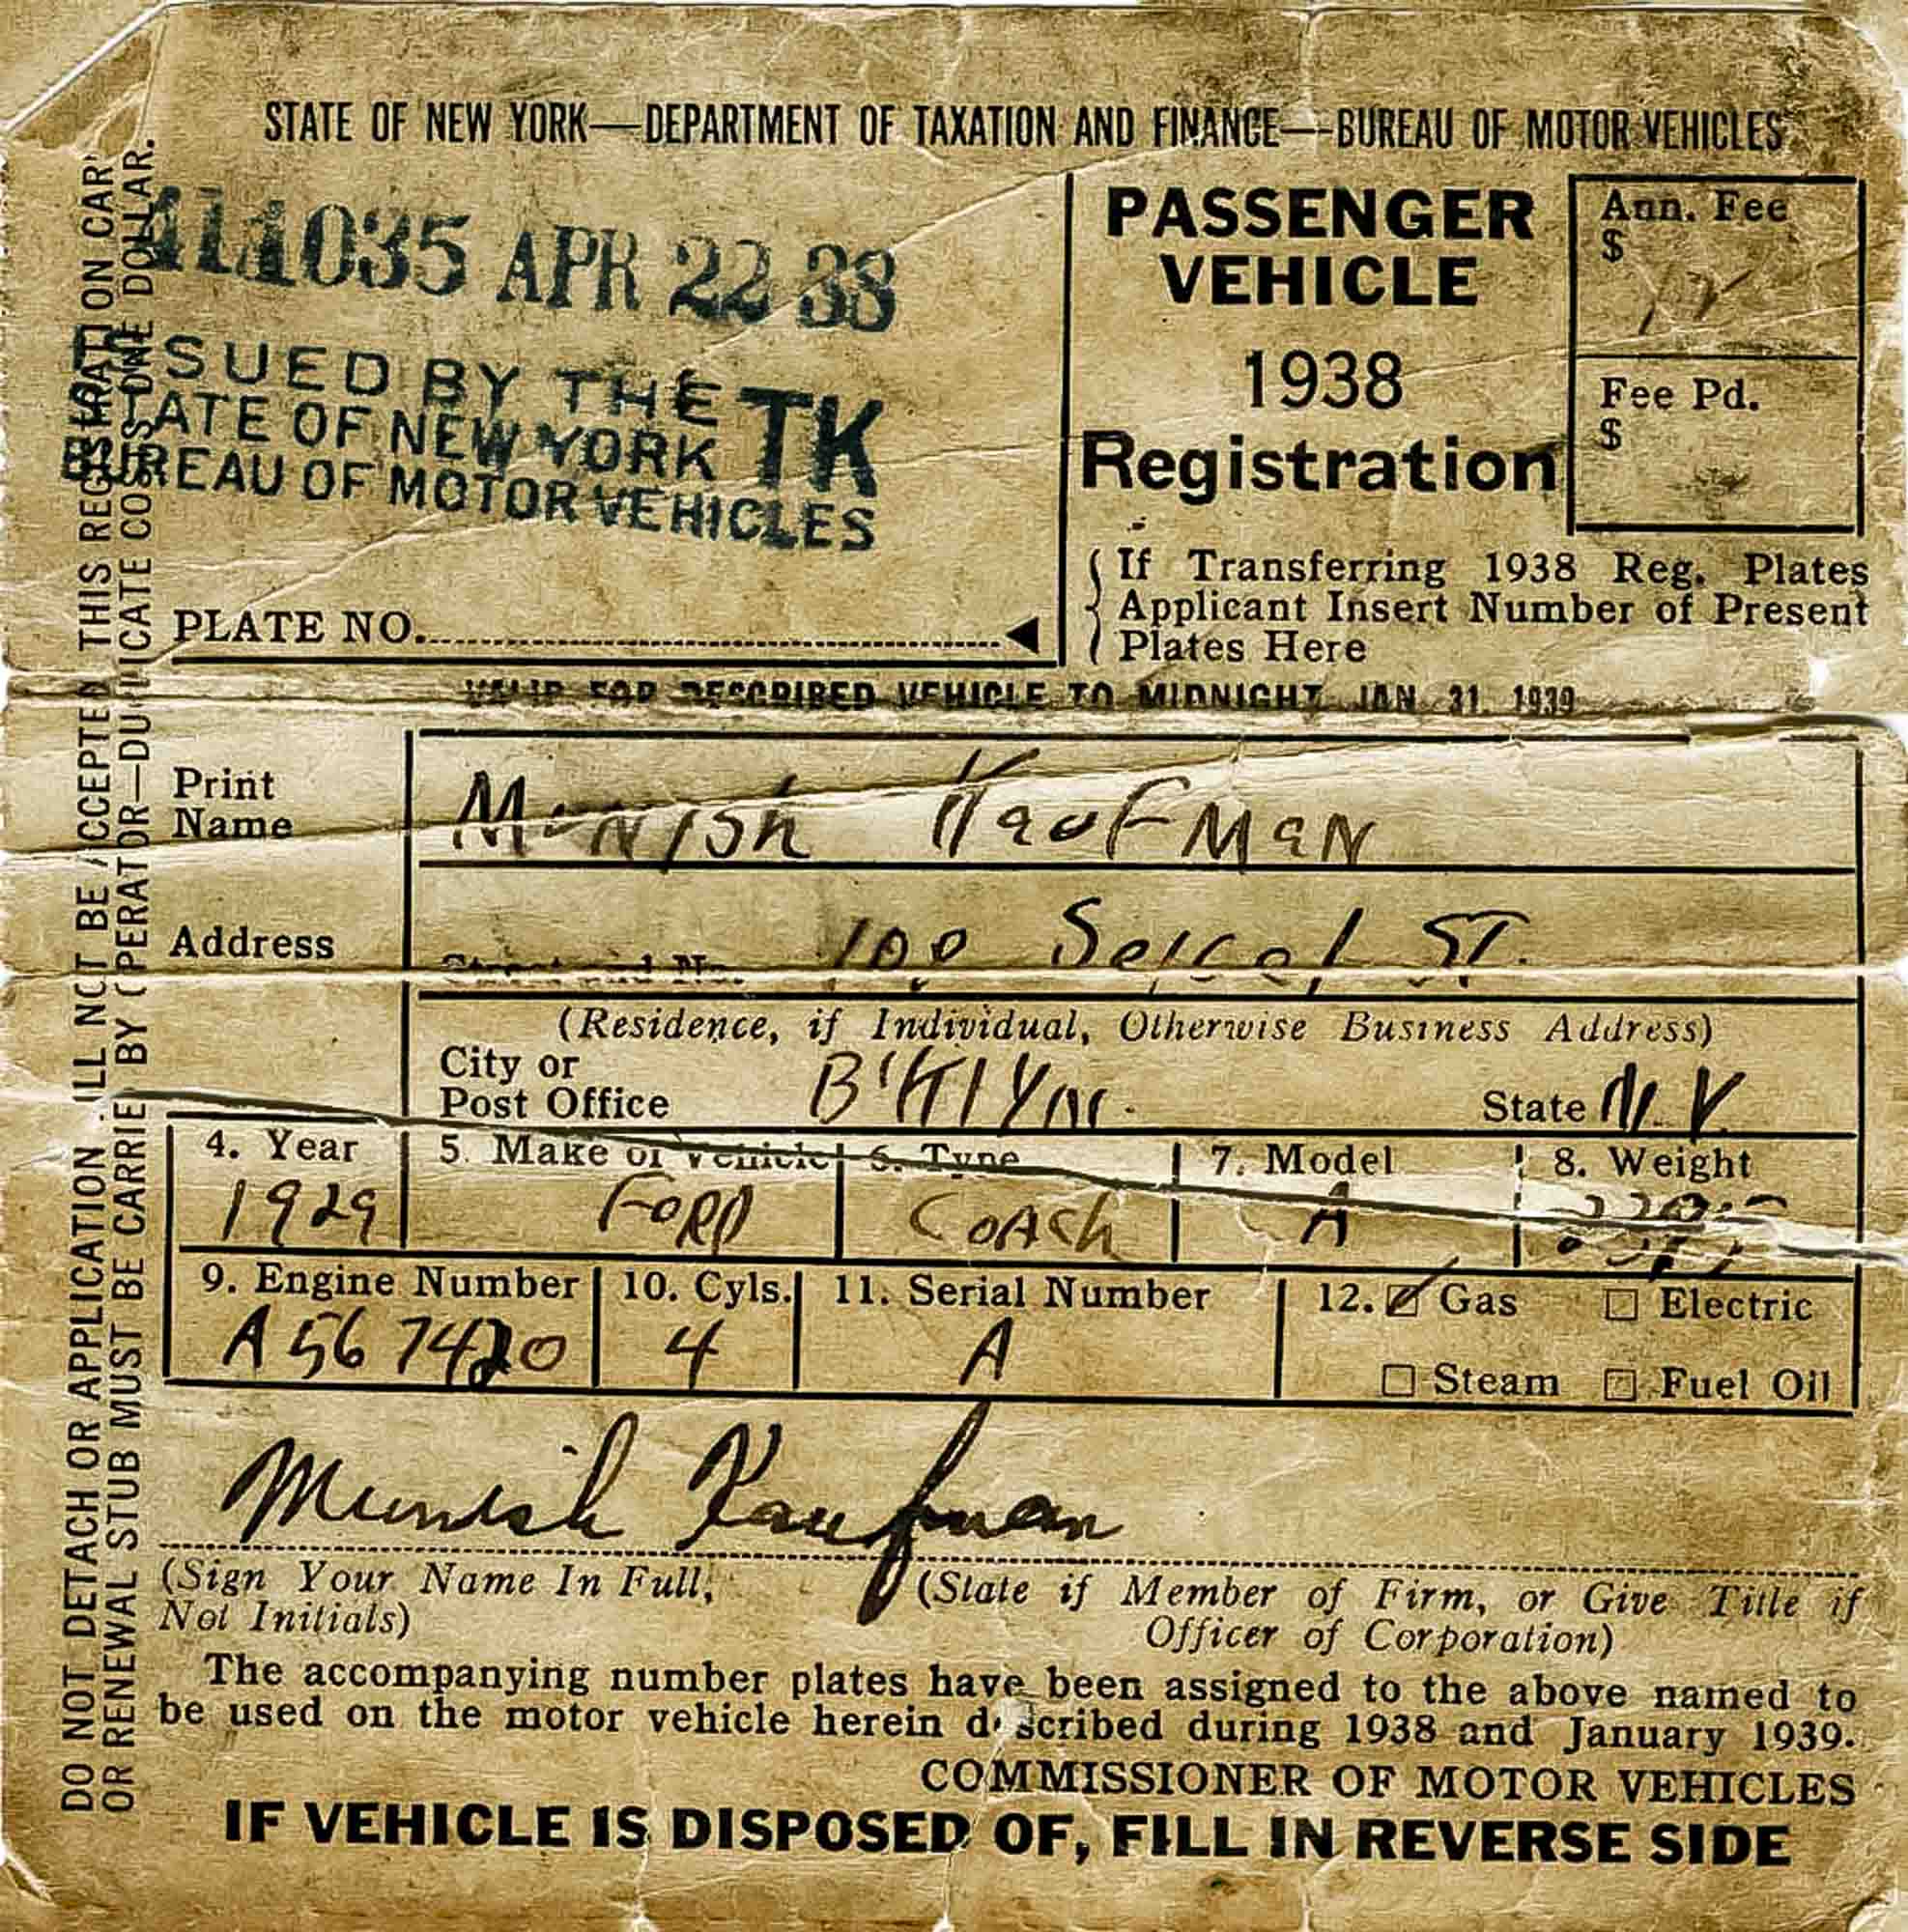 STATE OF NEW YORK—DEPARTMENT OF TAXATION AND FINANCE—BUREAU OF MOTOR VEHICLES
411035 APR 22 38
ISSUED BY THE
STATE OF NEW YORK TK
BUREAU OF MOTOR VEHICLES
PLATE NO.
PASSENGER
VEHICLE
1938
Registration
Ann. Fee
$
Fee Pd.
$
If Transferring 1938 Reg. Plates
Applicant Insert Number of Present
Plates Here
VALID FOR DESCRIBED VEHICLE TO MIDNIGHT JAN. 31, 1939
Print
Name
Munish Kaufman
Address
Street and No. 100 St.
(Residence, if Individual, Otherwise Business Address)
City or
Post Office B'klyn. State N.Y.
4. Year 5. Make of Vehicle 6. Type 7. Model 8. Weight
1929 Ford Coach A
9. Engine Number 10. Cyls. 11. Serial Number 12. Gas Electric
A567420 4 A
Steam Fuel Oil
Munish Kaufman
(Sign Your Name In Full, (State if Member of Firm, or Give Title if
Not Initials) Officer of Corporation)
The accompanying number plates have been assigned to the above named to
be used on the motor vehicle herein described during 1938 and January 1939.
COMMISSIONER OF MOTOR VEHICLES
IF VEHICLE IS DISPOSED OF, FILL IN REVERSE SIDE
DO NOT DETACH OR APPLICATION WILL NOT BE ACCEPTED THIS REGISTRATION ON CAR
OR RENEWAL STUB MUST BE CARRIED BY OPERATOR—DUPLICATE COSTS ONE DOLLAR.